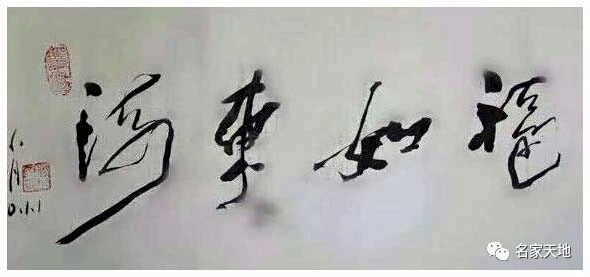 福如東海
名家天地